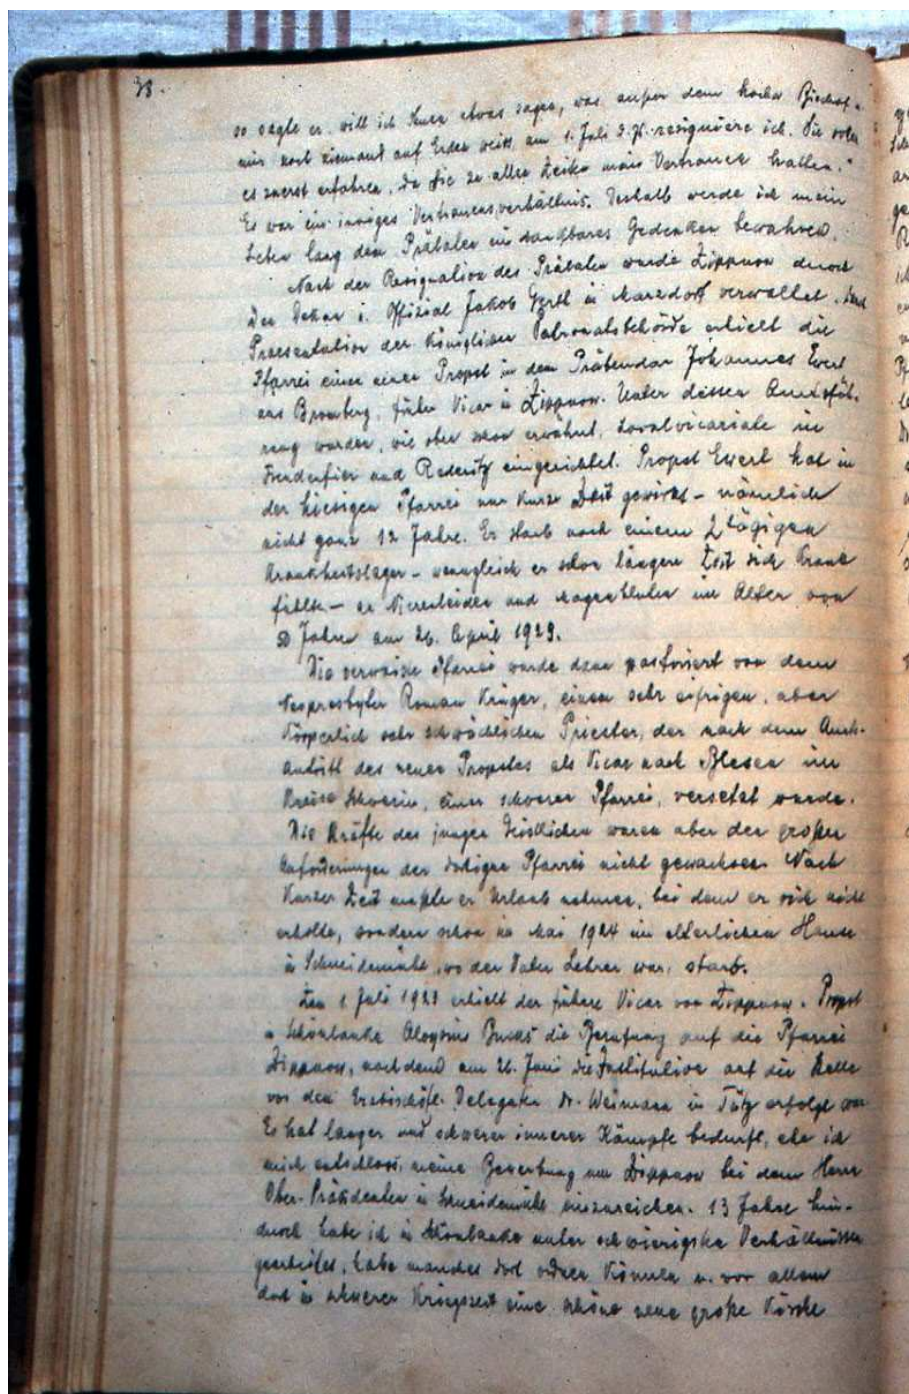 38.
so sagte er, will ich Ihnen etwas sagen, was außer dem hochw. Bischof u.
mir noch niemand auf Erden weiß, am 1. Juli d. Js. resigniere ich. Sie sollen
es zuerst erfahren, da Sie zu allen Zeiten mein Vertrauen hatten."
Es war ein inniges Vertrauensverhältnis. Deshalb werde ich mein
Leben lang dem Prälaten ein dankbares Gedenken bewahren.
Nach der Resignation des Prälaten wurde Zippnow durch
den Dekan i. Offizial Jakob in Marzdorf verwaltet. Durch
Praesentation der Königlichen Patronatsbehörde erhielt die
Pfarrei einen neuen Propst in dem Präbendar Johannes Ewert
aus Bromberg, früher Vicar in Zippnow. Unter dessen Amtsfüh-
rung wurden, wie oben schon erwähnt, Lokalvicariate in
Freudenfier und Rederitz eingerichtet. Propst Ewert hat in
der hiesigen Pfarrei nur kurze Zeit gewirkt – nämlich
nicht ganz 12 Jahre. Er starb nach einem 2 tägigen
Krankheitslager – wenngleich er schon längere Zeit sich krank
fühlte – an Nierenleiden und Magenbluten im Alter von
50 Jahren am 26. April 1923.
Die verwaiste Pfarrei wurde dann pastoriert von dem
Neopresbyter Roman Krüger, einem sehr eifrigen, aber
körperlich sehr schwächlichen Priester, der nach dem Amts-
antritt des neuen Propstes als Vicar nach Blesen im
Kreise Schwerin, einer schweren Pfarrei, versetzt wurde.
Die Kräfte des jungen Geistlichen waren aber den großen
Anforderungen der dortigen Pfarrei nicht gewachsen. Nach
kurzer Zeit mußte er Urlaub nehmen, bei dem er sich nicht
erholte, sondern schon im Mai 1924 im elterlichen Hause
in Schneidemühl, wo der Vater Lehrer war, starb.
Den 1. Juli 1923 erhielt der frühere Vicar von Zippnow, Propst
in Schönlanke Aloysius die Berufung auf die Pfarrei
Zippnow, nachdem am 26. Juni die Institution auf die Stelle
vor dem Erzbischöfl. Delegaten Dr. Weimann in Tütz erfolgt war.
Es hat langer und schwerer innerer Kämpfe bedurft, ehe ich
mich entschloss, meine Bewerbung um Zippnow bei dem Herrn
Ober-Präsidenten in Schneidemühl einzureichen. 13 Jahre hin-
durch habe ich in Schönlanke unter schwierigsten Verhältnissen
gearbeitet, habe manches dort ordnen können u. vor allem
dort in schwerer Kriegszeit eine schöne neue große Kirche